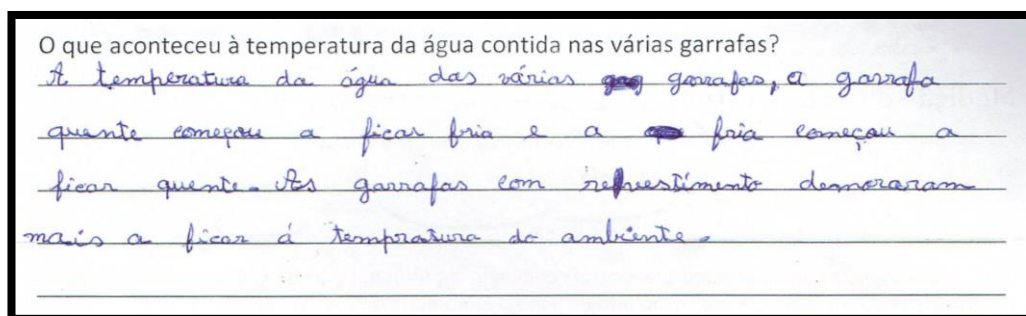 O que aconteceu à temperatura da água contida nas várias garrafas?
A temperatura da água das várias garrafas, a garrafa
quente começou a ficar fria e a fria começou a
ficar quente. As garrafas com refvestimento demoraram
mais a ficar á tempratura do ambiente.